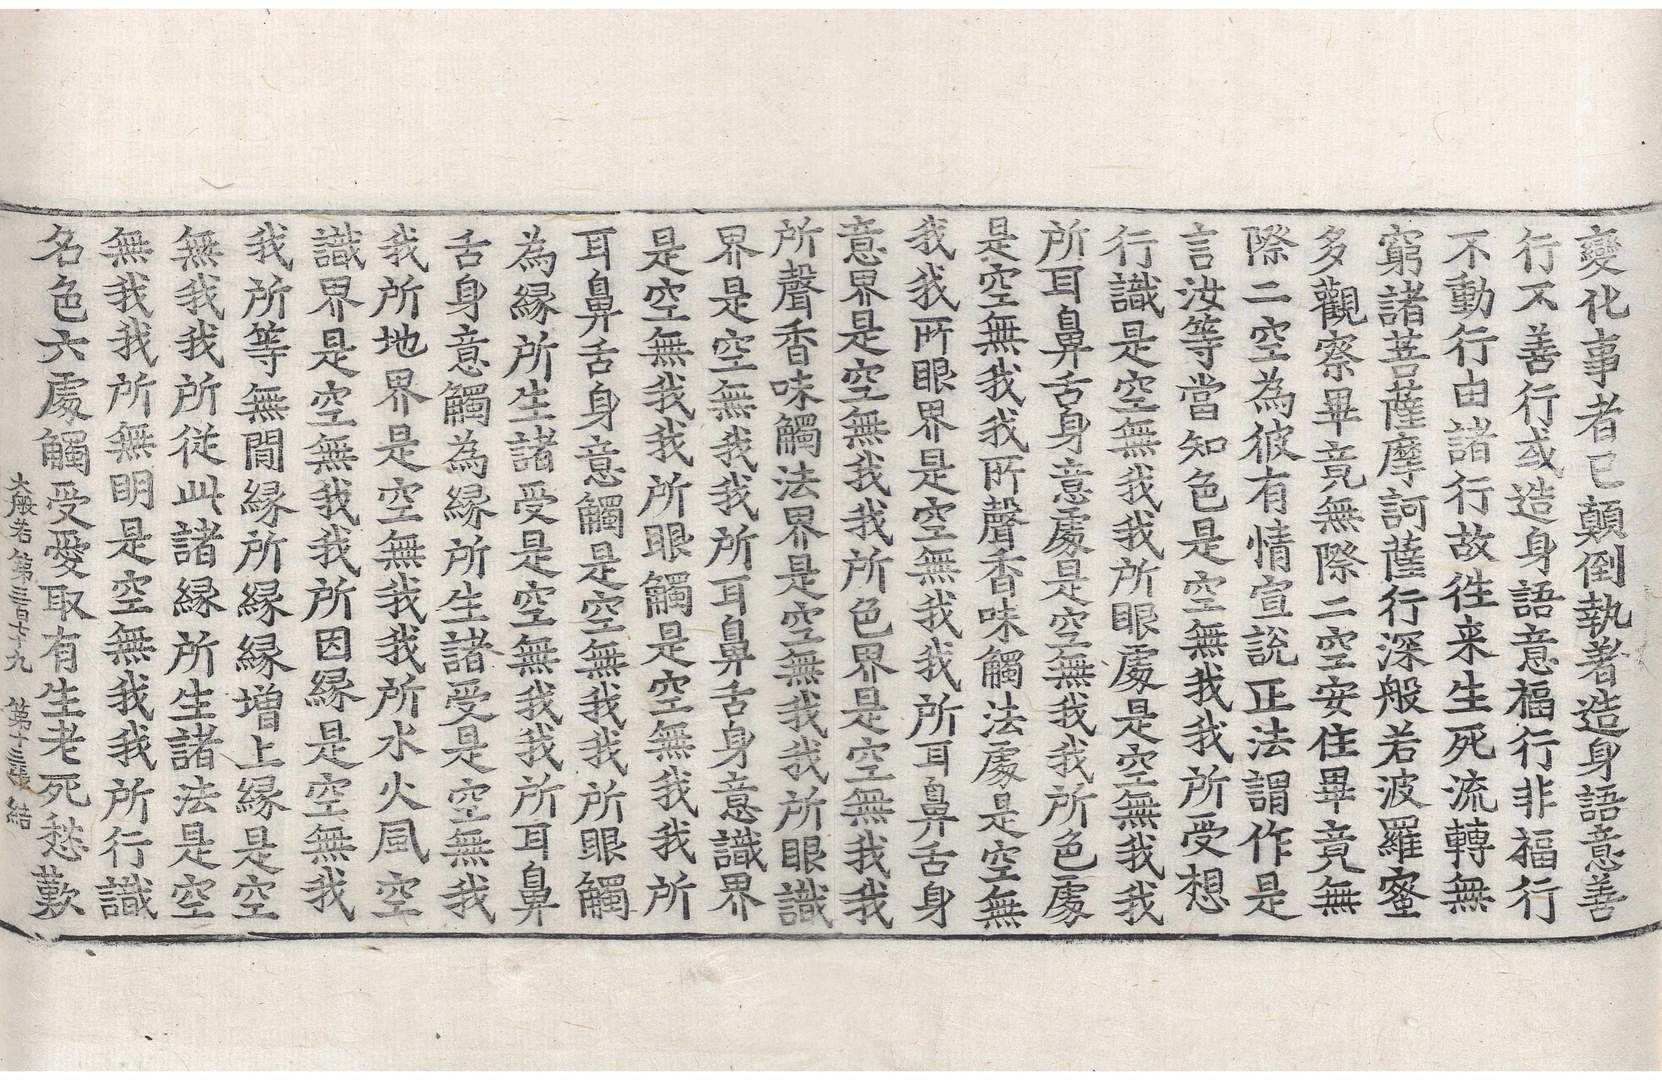 變化事者已顛倒執著造身語意善
行不善行或造身語意福行非福行
不動行由諸行故徃来生死流轉無
窮諸菩薩摩訶薩行深般若波羅蜜
多觀察畢竟無際二空安住畢竟無
際二空為彼有情宣說正法謂作是
言汝等當知色是空無我我所受想
行識是空無我我所眼處是空無我我
所耳鼻舌身意處是空無我我所色處
是空無我我所聲香味觸法處是空無
我我所眼界是空無我我所耳鼻舌身
意界是空無我我所色界是空無我我
所聲香味觸法界是空無我我所眼識
界是空無我我所耳鼻舌身意識界
是空無我我所眼觸是空無我我所
耳鼻舌身意觸是空無我我所眼觸
為緣所生諸受是空無我我所耳鼻
舌身意觸為緣所生諸受是空無我
我所地界是空無我我所水火風空
識界是空無我我所因緣是空無我
我所等無間緣所緣緣增上緣是空
無我我所從此諸緣所生諸法是空
無我我所無明是空無我我所行識
名色六處觸受愛取有生老死愁歎
大般若第三百七十九 第十三張 結